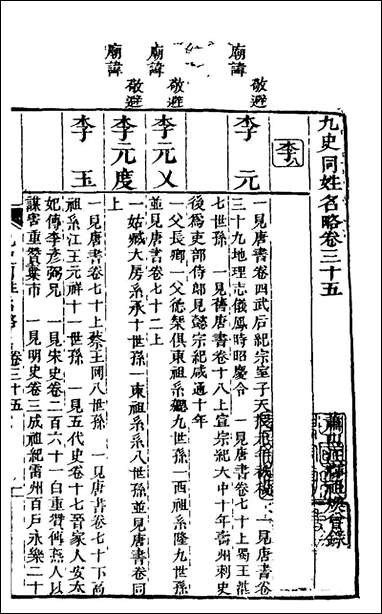 九史同姓名略卷三十五
蕭山汪輝祖煥曾錄
李
敬避
廟諱
李元
一見唐書卷四武后紀宗室子天授
一見唐書卷
三十九地理志儀鳳時昭慶令 一見唐書卷七十上蜀王湛
七世孫 一見舊唐書卷十八上宣宗紀大中十年 州刺史
後為吏部侍郎見懿宗紀咸通十年
敬避
廟諱
李元乂
一父長卿一父德 俱東祖系 九世孫一西祖系隆九世孫
並見唐書卷七十二上
敬避
廟諱
李元度
一姑臧大房系承十世孫一東祖系系八世孫並見唐書卷同
上
李玉
一見唐書卷七十上蔡王岡八世孫 一見唐書卷七十下高
祖系江王元祥十一世孫 一見五代史卷十七晉家人安太
妃傳李彥弼兄 一見宋史卷二百六十一白重贊傳燕人以
謀害重贊棄市 一見明史卷三成祖紀雷州百戶永樂二十
九史同姓名略 卷三十五
一